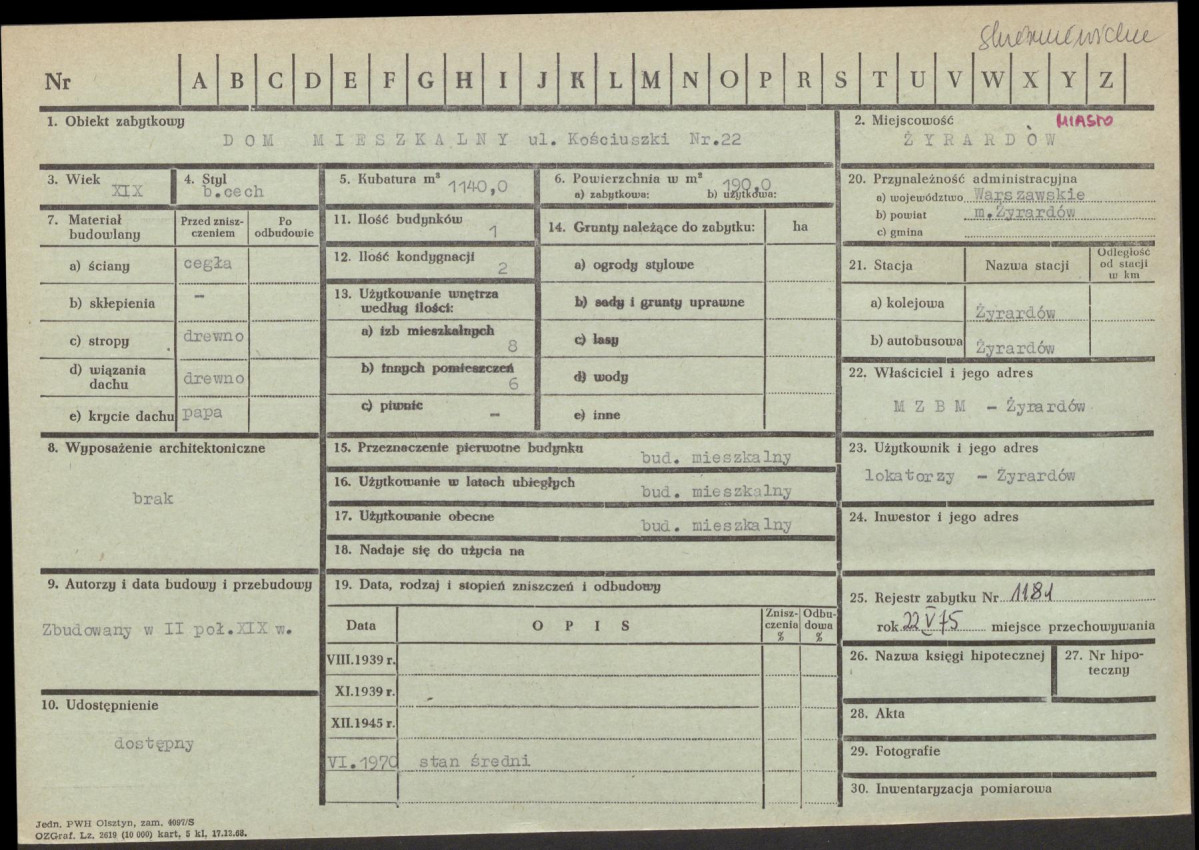 skierniewickie
Nr A B C D E F G H I J K L M N O P R S T U V W X Y Z
1. Obiekt zabytkowy
DOM MIESZKALNY ul. Kościuszki Nr.22
2. Miejscowość MIASTO
ŻYRARDÓW
3. Wiek
XIX
4. Styl
b.cech
5. Kubatura m³ 1140,0
6. Powierzchnia w m² 190,0
a) zabytkowa: b) użytkowa:
20. Przynależność administracyjna
a) województwo Warszawskie
b) powiat m.Żyrardów
c) gmina
7. Materiał budowlany
Przed zniszczeniem
Po odbudowie
a) ściany cegła
b) sklepienia –
c) stropy drewno
d) wiązania dachu drewno
e) krycie dachu papa
11. Ilość budynków 1
12. Ilość kondygnacji 2
13. Użytkowanie wnętrza
według ilości:
a) izb mieszkalnych 8
b) innych pomieszczeń 6
c) piwnic –
14. Grunty należące do zabytku: ha
a) ogrody stylowe
b) sady i grunty uprawne
c) lasy
d) wody
e) inne
21. Stacja Nazwa stacji Odległość od stacji w km
a) kolejowa Żyrardów
b) autobusowa Żyrardów
22. Właściciel i jego adres
M Z B M – Żyrardów
8. Wyposażenie architektoniczne
brak
15. Przeznaczenie pierwotne budynku bud. mieszkalny
16. Użytkowanie w latach ubiegłych bud. mieszkalny
17. Użytkowanie obecne bud. mieszkalny
18. Nadaje się do użycia na
23. Użytkownik i jego adres
lokatorzy – Żyrardów
24. Inwestor i jego adres
9. Autorzy i data budowy i przebudowy
Zbudowany w II poł.XIX w.
19. Data, rodzaj i stopień zniszczeń i odbudowy
Data OPIS Zniszczenia % Odbudowa %
VIII.1939 r.
XI.1939 r.
XII.1945 r.
VI.1970 stan średni
25. Rejestr zabytku Nr 1181
rok 22 V 75 miejsce przechowywania
26. Nazwa księgi hipotecznej
27. Nr hipoteczny
10. Udostępnienie
dostępny
28. Akta
29. Fotografie
30. Inwentaryzacja pomiarowa
Jedn. PWH Olsztyn, zam. 4097/S
OZGraf. Lz. 2619 (10 000) kart, 5 kl, 17.12.68.